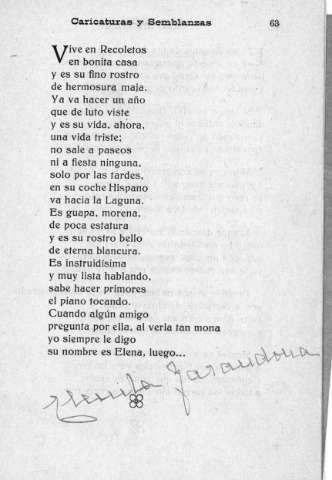 Caricaturas y Semblanzas 63
Vive en Recoletos
en bonita casa
y es su fino rostro
de hermosura maja.
Ya va hacer un año
que de luto viste
y es su vida, ahora,
una vida triste;
no sale a paseos
ni a fiesta ninguna,
solo por las tardes,
en su coche Hispano
va hacia la Laguna.
Es guapa, morena,
de poca estatura
y es su rostro bello
de eterna blancura.
Es instruidísima
y muy lista hablando,
sabe hacer primores
el piano tocando.
Cuando algún amigo
pregunta por ella, al verla tan mona
yo siempre le digo
su nombre es Elena, luego...
Elenita